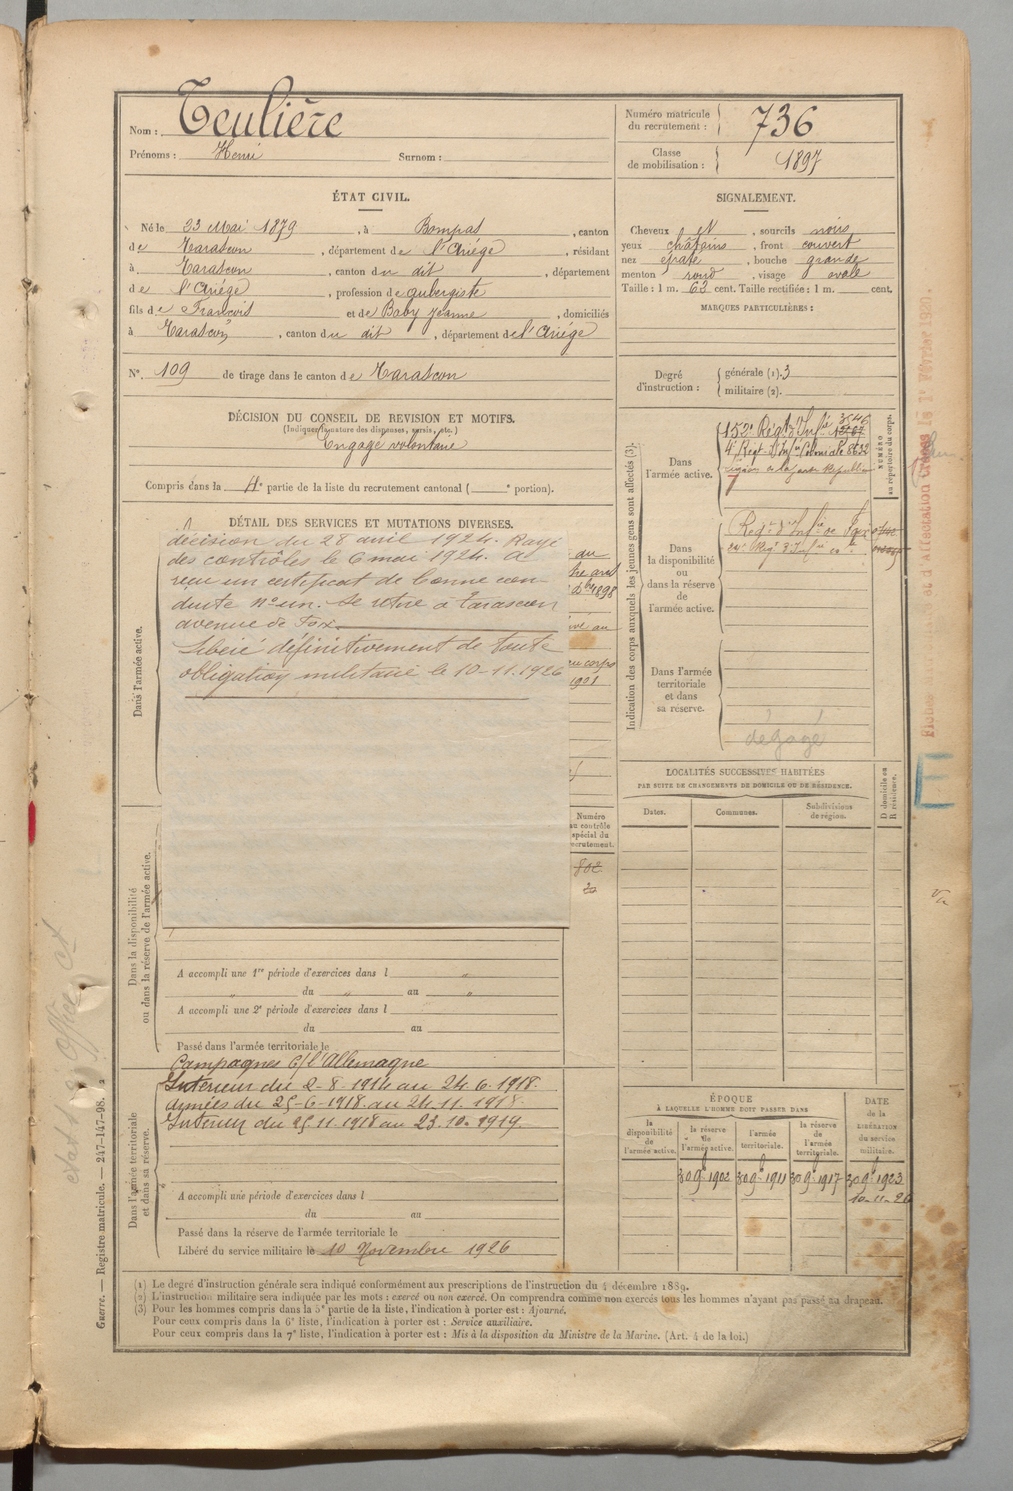 Nom : Teulière
Prénoms : Henri Surnom :
Numéro matricule du recrutement : 736
Classe de mobilisation : 1897
ÉTAT CIVIL.
Né le 23 Mai 1879, à Bompas, canton
de Tarascon, département de l'Ariége, résidant
à Tarascon, canton du dit, département
de l'Ariége, profession de aubergiste
fils de François et de Baby Jeanne, domiciliés
à Tarascon, canton du dit, département de l'Ariége
N° 109 de tirage dans le canton de Tarascon
SIGNALEMENT.
Cheveux et, sourcils noirs
yeux châtains, front couvert
nez épaté, bouche grande
menton rond, visage ovale
Taille : 1 m. 63 cent. Taille rectifiée : 1 m. cent.
MARQUES PARTICULIÈRES :
Degré d'instruction : générale (1). 3
militaire (2).
DÉCISION DU CONSEIL DE REVISION ET MOTIFS.
(Indiquer la nature des dispenses, sursis, etc.)
Engagé volontaire
Compris dans la 4e partie de la liste du recrutement cantonal ( e portion).
DÉTAIL DES SERVICES ET MUTATIONS DIVERSES.
Dans l'armée active.
décision du 28 avril 1924. Rayé
des contrôles le 6 mai 1924. A
reçu un certificat de bonne con-
duite n° un. Se retire à Tarascon
avenue de Foix.
Libéré définitivement de toute
obligation militaire le 10-11.1926
Indication des corps auxquels les jeunes gens sont affectés (3).
Dans l'armée active.
152e Régt d'Infie 3546
4e Régt d'Infie Coloniale 8632
NUMÉRO au répertoire du corps.
Dans la disponibilité ou dans la réserve de l'armée active.
Regt d'Infie de Foix
Dans l'armée territoriale et dans sa réserve.
dégagé
LOCALITÉS SUCCESSIVES HABITÉES
PAR SUITE DE CHANGEMENTS DE DOMICILE OU DE RÉSIDENCE.
Dates. Communes. Subdivisions de région. D domicile ou R résidence.
Numéro au contrôle spécial du recrutement.
802
Dans la disponibilité ou dans la réserve de l'armée active.
A accompli une 1re période d'exercices dans l „
„ du „ au „
A accompli une 2e période d'exercices dans l
du au
Passé dans l'armée territoriale le
Campagnes c/ l'Allemagne
Intérieur du 2-8-1914 au 24.6.1918.
Armées du 25-6-1918 au 24.11.1918.
Intérieur du 25.11.1918 au 23.10.1919.
Dans l'armée territoriale et dans sa réserve.
A accompli une période d'exercices dans l
du au
Passé dans la réserve de l'armée territoriale le
Libéré du service militaire le 10 Novembre 1926
ÉPOQUE
À LAQUELLE L'HOMME DOIT PASSER DANS
la disponibilité de l'armée active. la réserve de l'armée active. l'armée territoriale. la réserve de l'armée territoriale.
DATE de la LIBÉRATION du service militaire.
30 9bre 1902 30 9bre 1911 30 9bre 1917 30 9bre 1923
10-11-26
(1) Le degré d'instruction générale sera indiqué conformément aux prescriptions de l'instruction du 4 décembre 1889.
(2) L'instruction militaire sera indiquée par les mots : exercé ou non exercé. On comprendra comme non exercés tous les hommes n'ayant pas passé au drapeau.
(3) Pour les hommes compris dans la 5e partie de la liste, l'indication à porter est : Ajourné.
Pour ceux compris dans la 6e liste, l'indication à porter est : Service auxiliaire.
Pour ceux compris dans la 7e liste, l'indication à porter est : Mis à la disposition du Ministre de la Marine. (Art. 4 de la loi.)
Guerre. — Registre matricule. — 247-147-98.
E